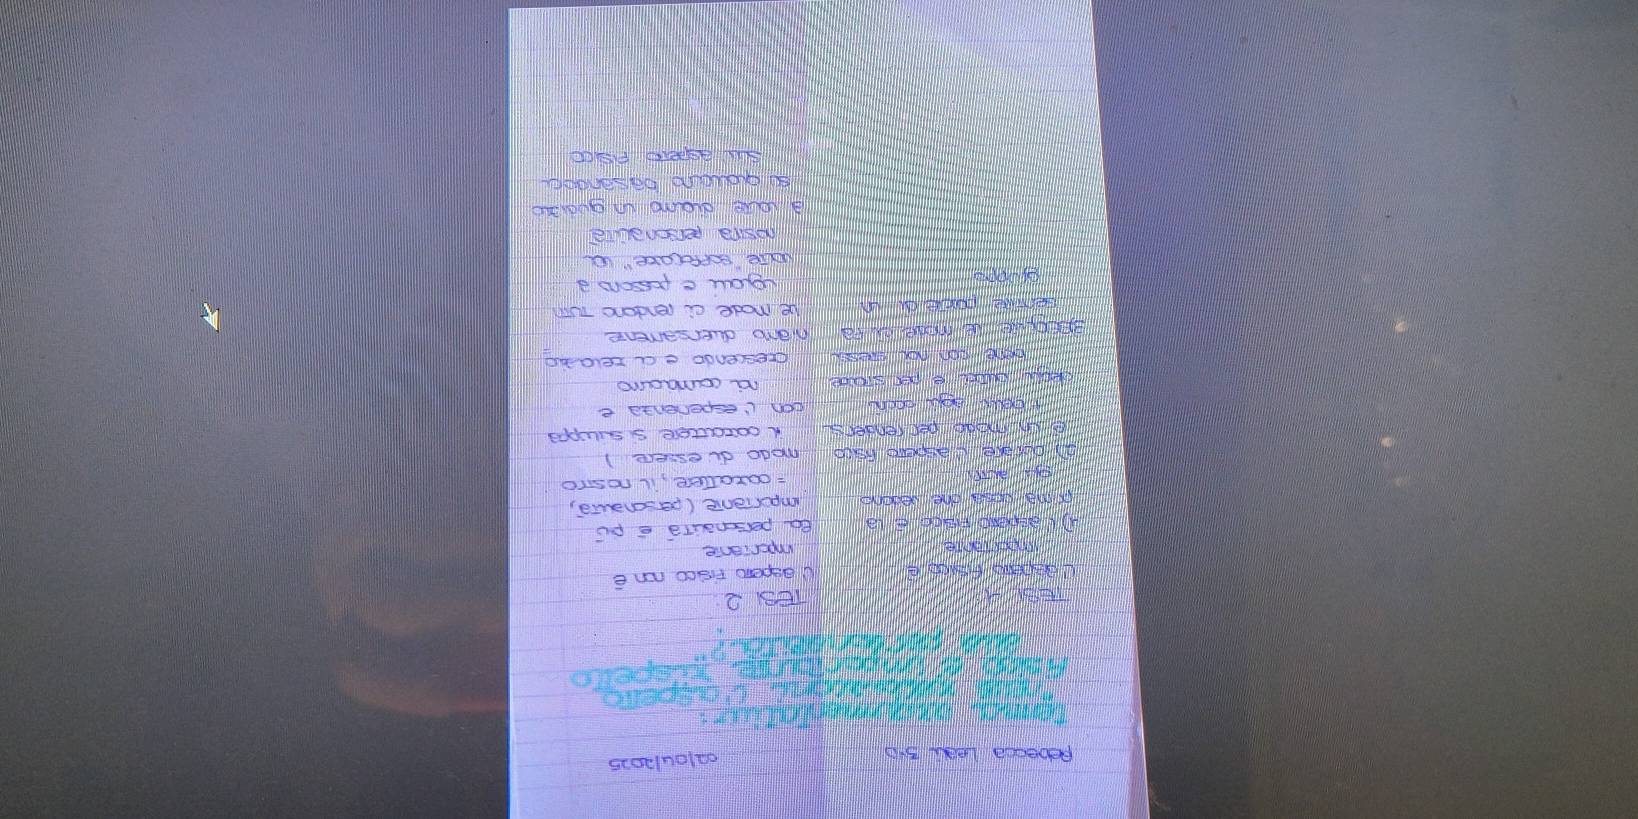 Rebecca Leali 3°D 02/04/2025
Tema argomentativo:
"nella l'aspetto
fisico è importante rispetto
alla personalità?"
TESI 1
L'aspetto fisico è
importante
1) L'aspetto fisico è la
prima cosa che vedono
gli altri
2) curare l'aspetto fisico
è un modo per rendersi
belli agli occhi
degli altri e per stare
bene con noi stessi
3) seguire le mode ci fa
sentire parte di un
gruppo
TESI 2
L'aspetto fisico non è
importante
La personalità è più
importante (personalità,
= carattere, il nostro
modo di essere)
il carattere si sviluppa
con l'esperienza e
noi cambiamo
crescendo e ci
diversamente
le mode ci rendono tutti
uguali e possono a
volte "soffocare" la
nostra personalità
a volte diamo un giudizio
su qualcuno basandoci
sull'aspetto fisico